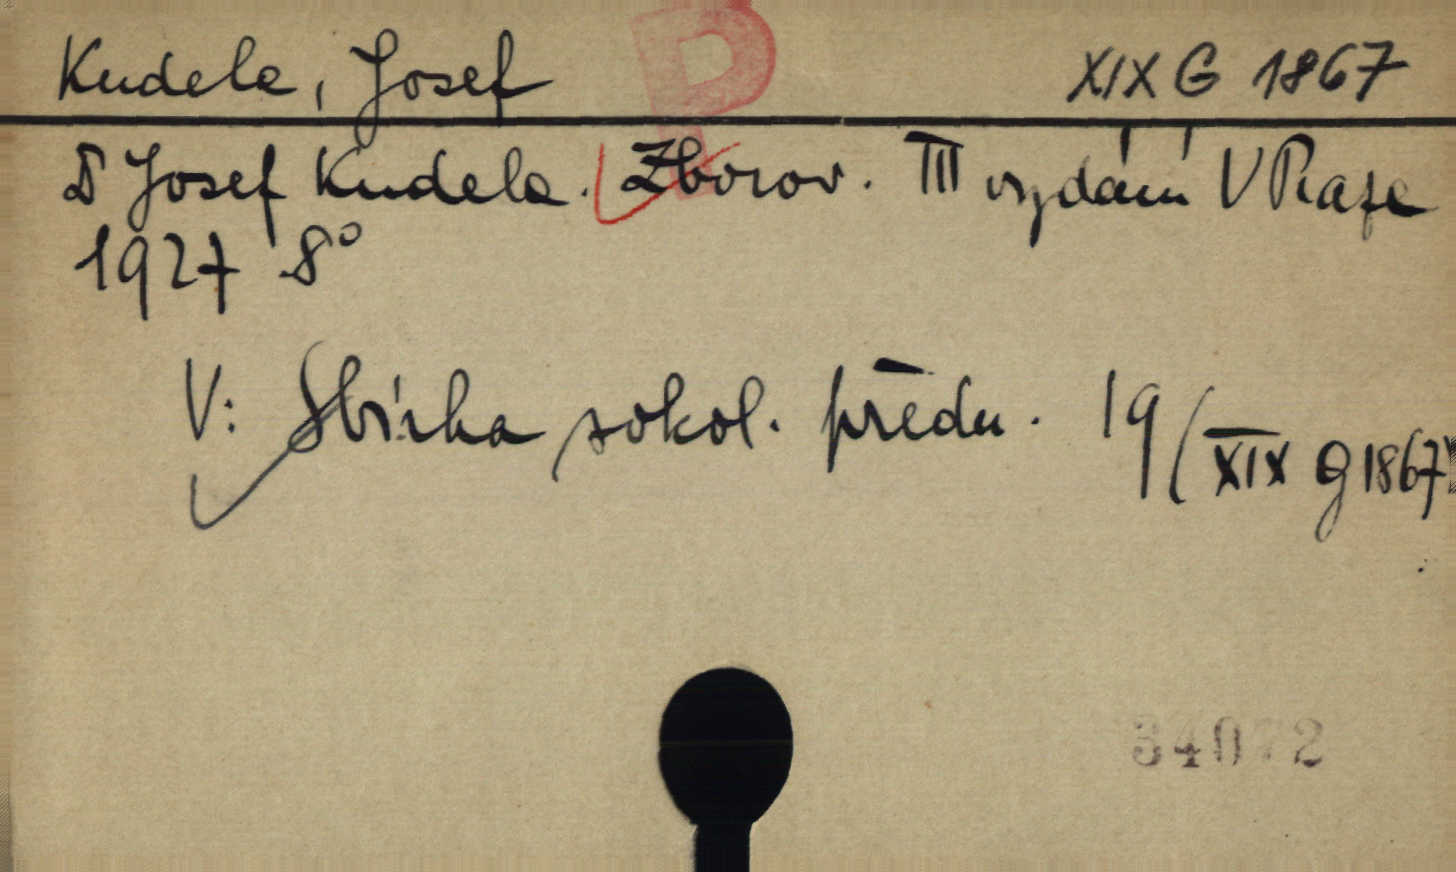 P
Kudela, Josef XIX G 1867
Dr Josef Kudela. Zborov. III vydání V Praze
1927 8°
V: Sbírka sokol. předn. 19 (XIX G 1867)
34072